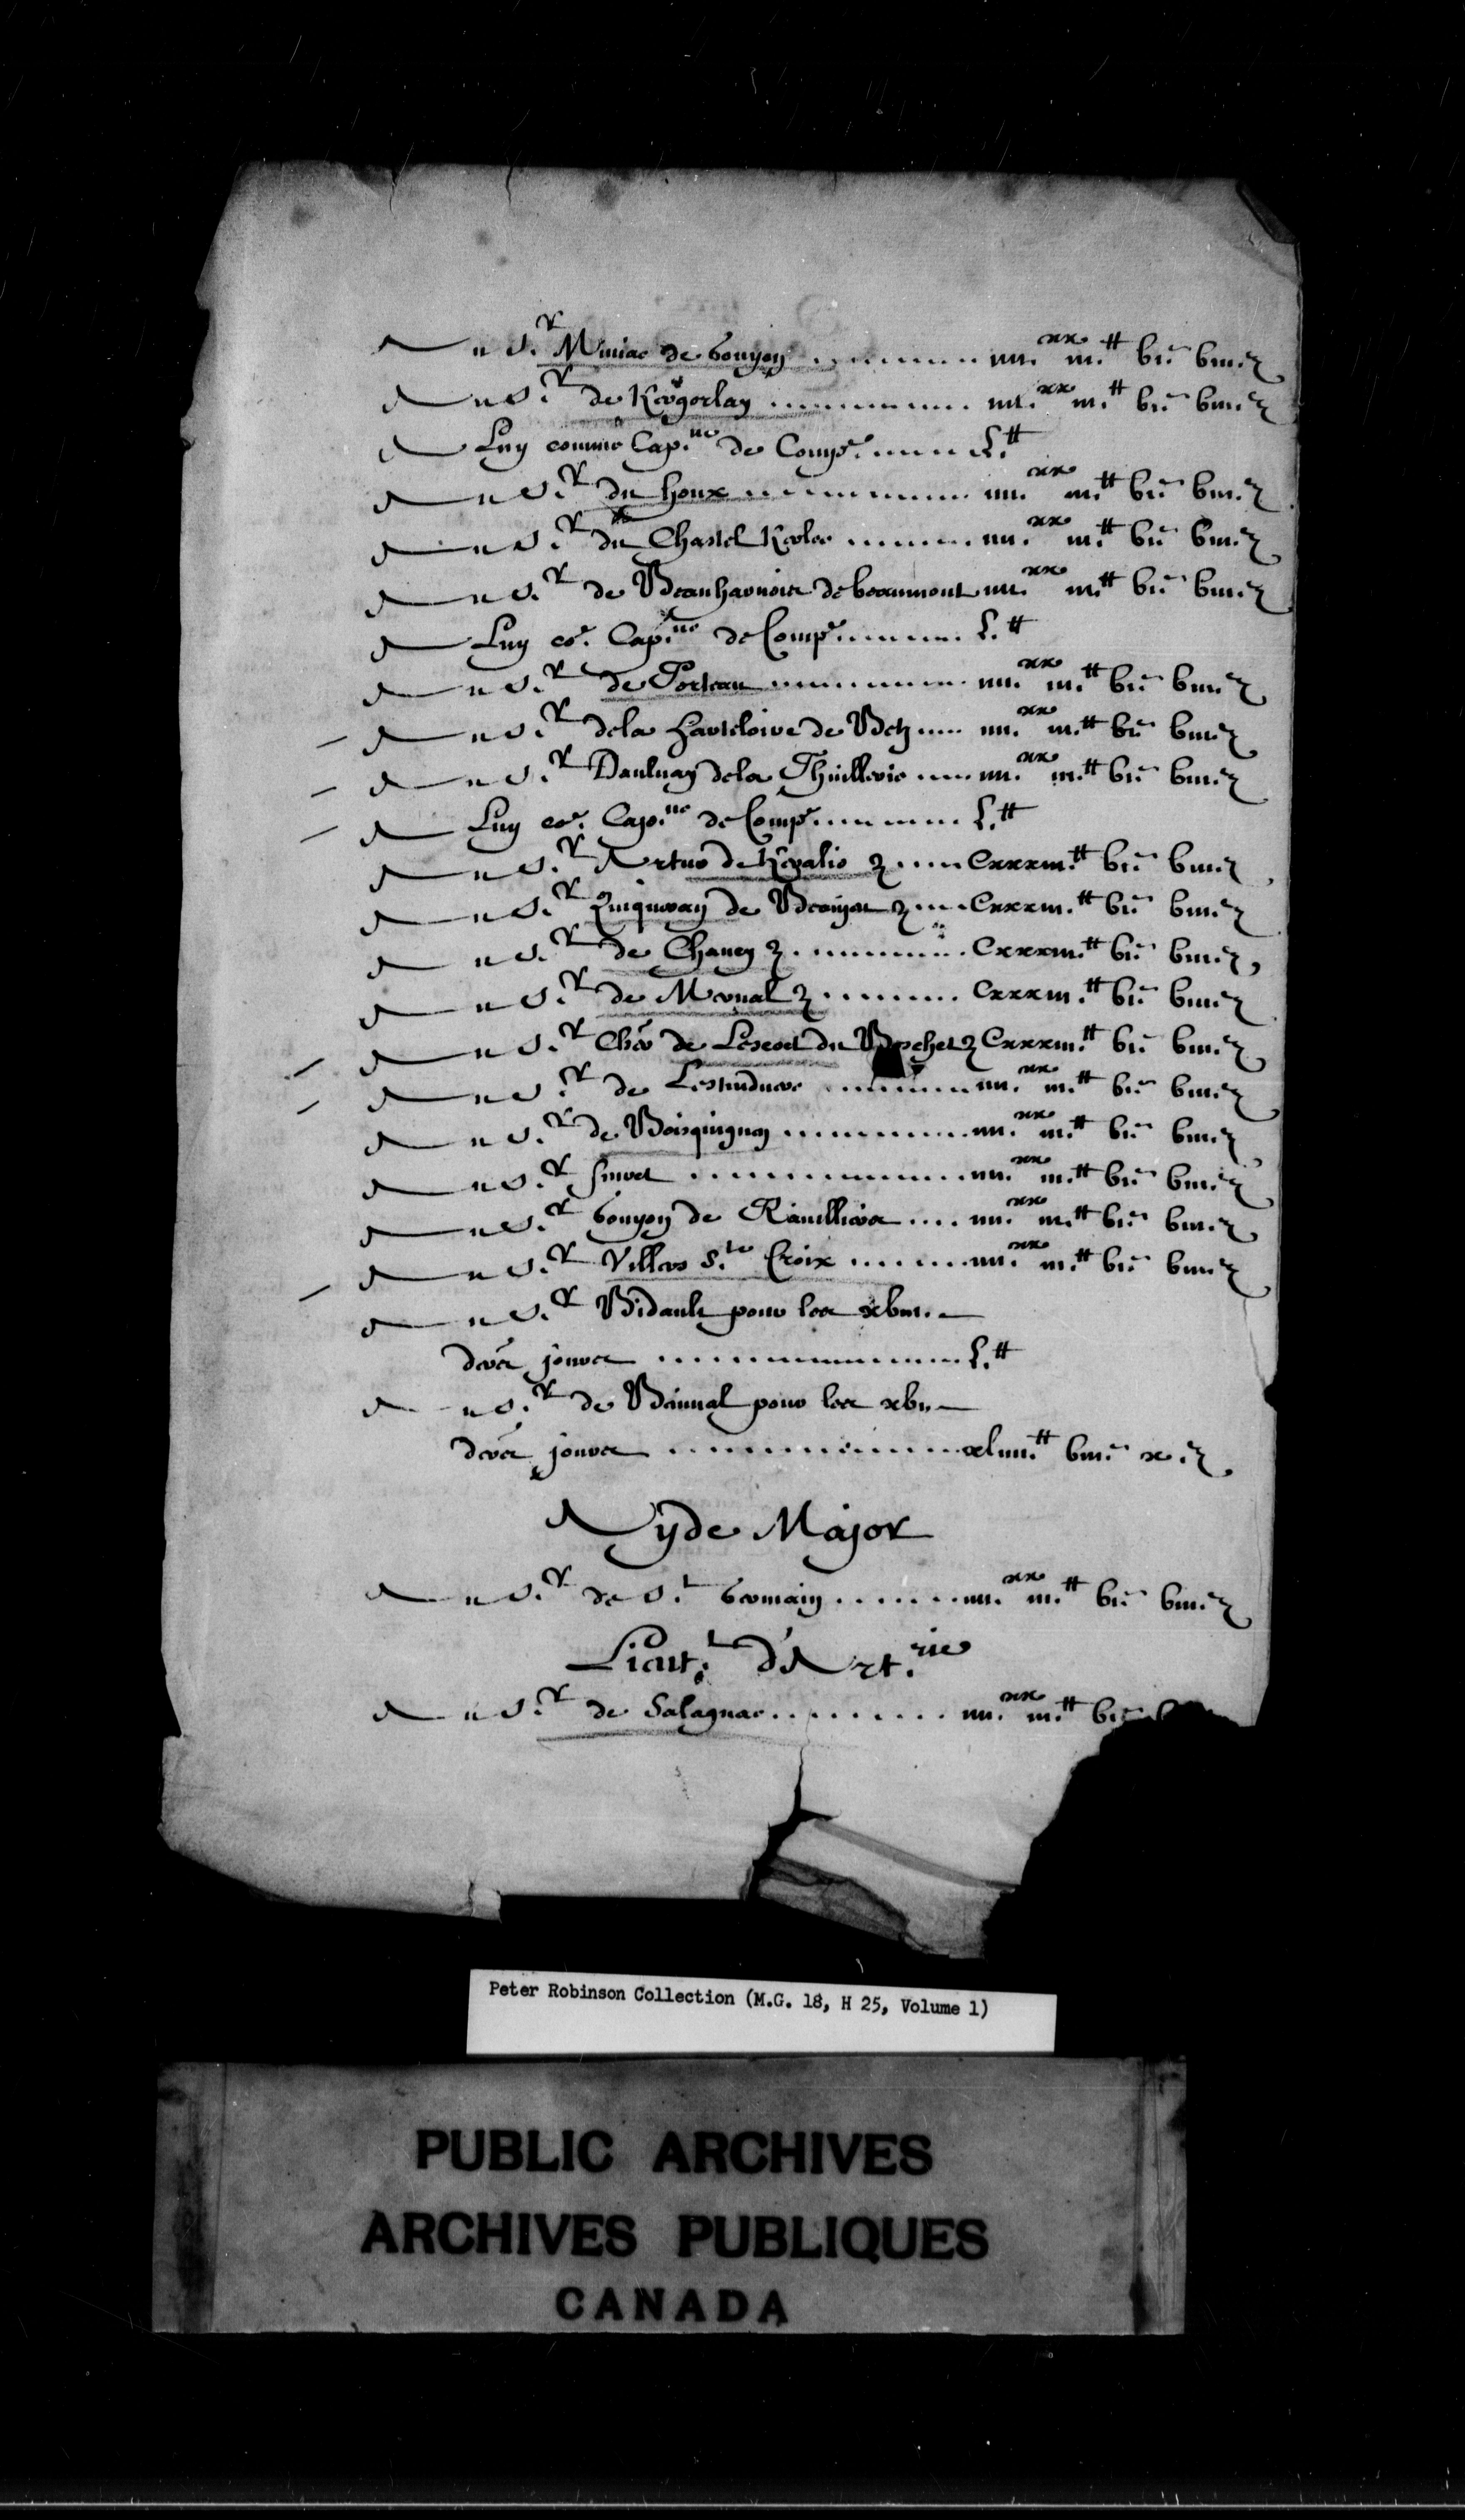 Au S.r Miniac de Gouyon ......... iiii.xx iii.tt vi.s viii.d
Au S.r de Kergorlay ......... iiii.xx iii.tt vi.s viii.d
A Luy comme Cap.ne de Comp.e ..... L.tt
Au S.r du houx ......... iiii.xx iii.tt vi.s viii.d
Au S.r du Chastel Kerlec ....... iiii.xx iii.tt vi.s viii.d
Au S.r de Beauharnois de beaumont iiii.xx iii.tt vi.s viii.d
A Luy co.e Cap.ne de Comp.e ....... L.tt
Au S.r de Porteau ......... iiii.xx iii.tt vi.s viii.d
Au S.r dela hauteloire de Betz .... iiii.xx iii.tt vi.s viii.d
Au S.r Daulnay dela Thuillerie .... iiii.xx iii.tt vi.s viii.d
A Luy co.e Cap.ne de Comp.e ....... L.tt
Au S.r Artus de Kervalio .... Cxxxiii.tt vi.s viii.d
Au S.r de .... Cxxxiii.tt vi.s viii.d
Au S.r de Chancy ......... Cxxxiii.tt vi.s viii.d
Au S.r de ....... Cxxxiii.tt vi.s viii.d
Au S.r Ch.er de Lescoet du Cxxxiii.tt vi.s viii.d
Au S.r de Lestanduere ......... iiii.xx iii.tt vi.s viii.d
Au S.r de Boisguignon ......... iiii.xx iii.tt vi.s viii.d
Au S.r ......... iiii.xx iii.tt vi.s viii.d
Au S.r Gouyon de .... iiii.xx iii.tt vi.s viii.d
Au S.r Villers S.te Croix ....... iiii.xx iii.tt vi.s viii.d
Au S.r Bidault pour les xviii.
der.s jours ......... L.tt
Au S.r de pour les xvi
der.s jours ......... xliiii.tt viii.s x.d
Ayde Major
Au S.r de S.t Germain ....... iiii.xx iii.tt vi.s viii.d
Lieut.t d'Art.rie
Au S.r de Salagnac ......... iiii.xx iii.tt vi.s
Peter Robinson Collection (M.G. 18, H 25, Volume 1)
PUBLIC ARCHIVES
ARCHIVES PUBLIQUES
CANADA